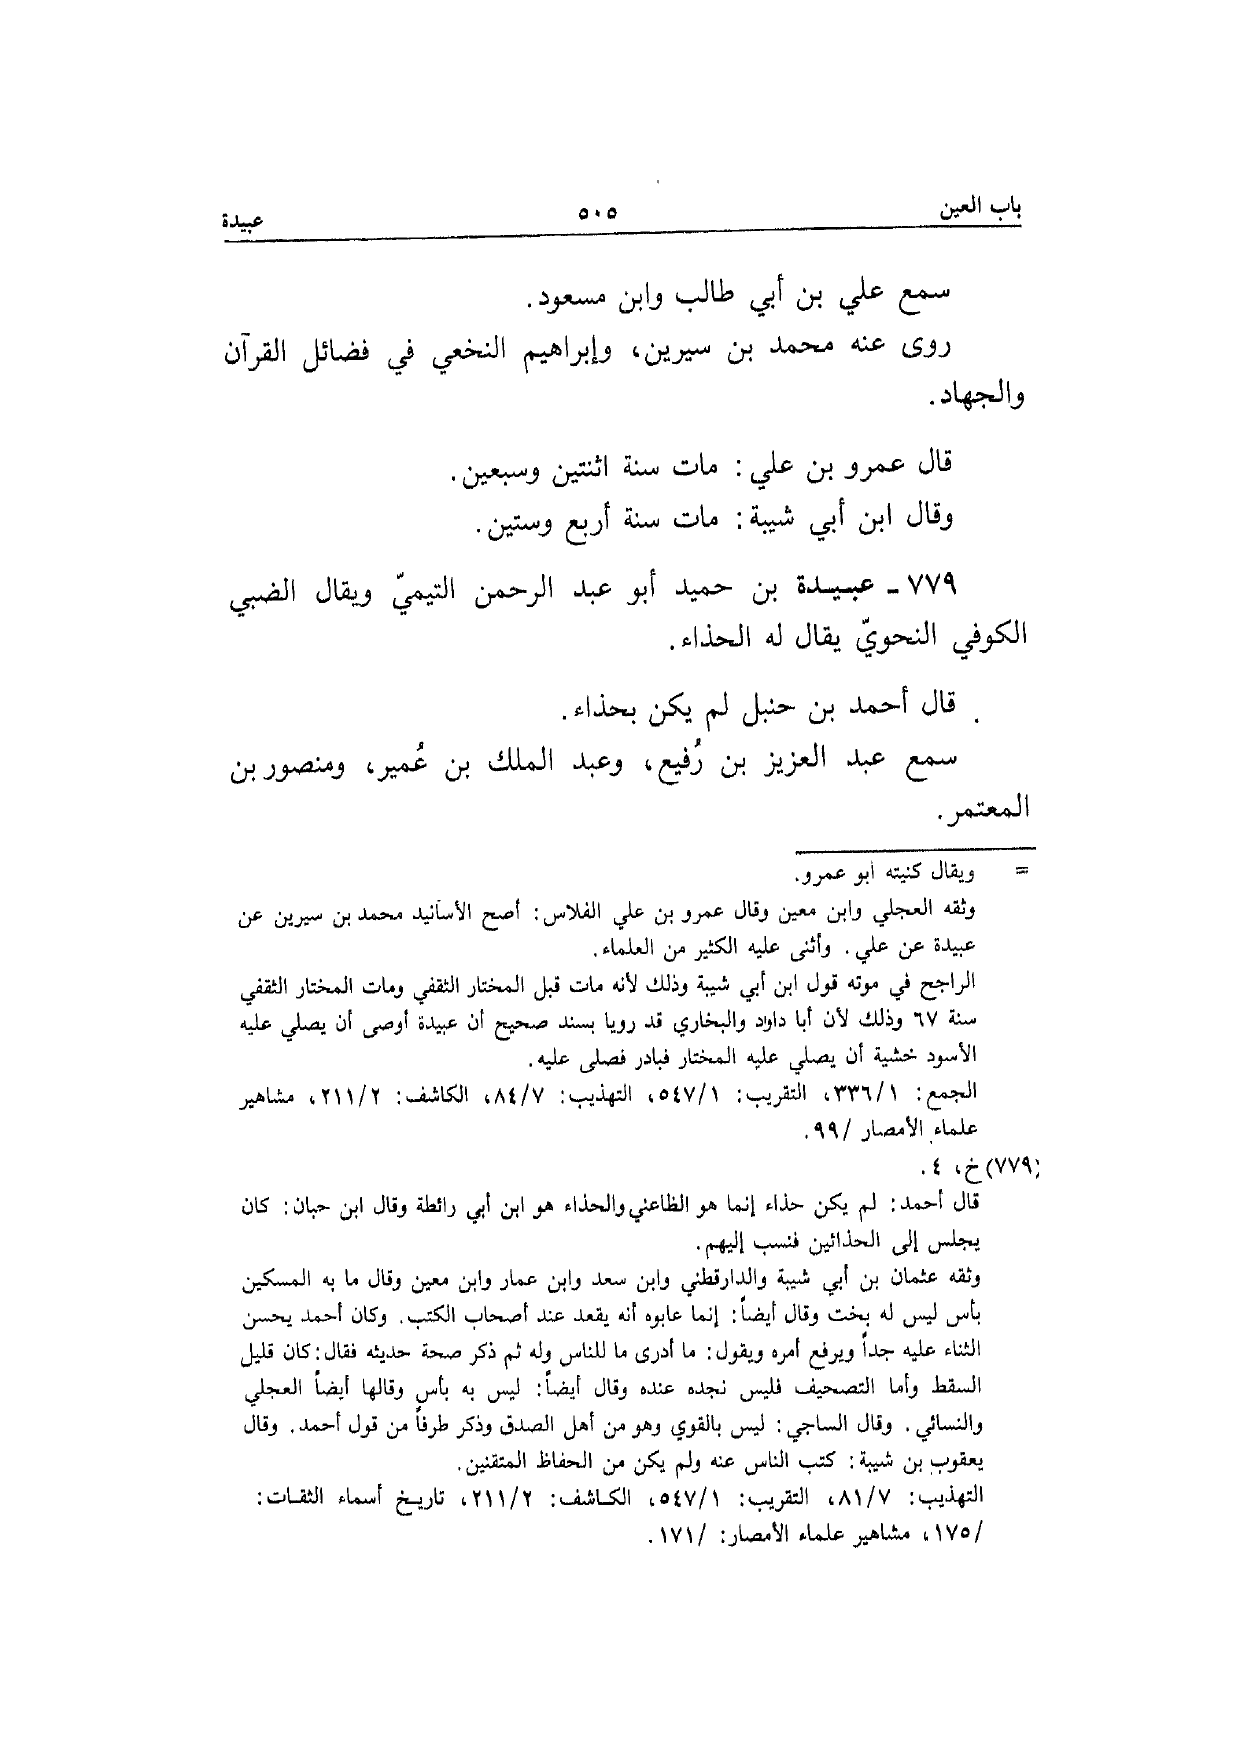 باب العين ٥٠٥ عبيدة
سمع علي بن أبي طالب وابن مسعود.
روى عنه محمد بن سيرين، وإبراهيم النخعي في فضائل القرآن
والجهاد.
قال عمرو بن علي: مات سنة اثنتين وسبعين.
وقال ابن أبي شيبة: مات سنة أربع وستين.
٧٧٩ ـ عبيدة بن حميد أبو عبد الرحمن التيميّ ويقال الضبي
الكوفي النحويّ يقال له الحذاء.
قال أحمد بن حنبل لم يكن بحذاء.
سمع عبد العزيز بن رُفيع، وعبد الملك بن عُمير، ومنصور بن
المعتمر.
= ويقال كنيته أبو عمرو.
وثقه العجلي وابن معين وقال عمرو بن علي الفلاس: أصح الأسانيد محمد بن سيرين عن
عبيدة عن علي. وأثنى عليه الكثير من العلماء.
الراجح في موته قول ابن أبي شيبة وذلك لأنه مات قبل المختار الثقفي ومات المختار الثقفي
سنة ٦٧ وذلك لأن أبا داواد والبخاري قد رويا بسند صحيح أن عبيدة أوصى أن يصلي عليه
الأسود خشية أن يصلي عليه المختار فبادر فصلى عليه.
الجمع: ٣٣٦/١، التقريب: ٥٤٧/١، التهذيب: ٨٤/٧، الكاشف: ٢١١/٢، مشاهير
علماء الأمصار /٩٩.
(٧٧٩) خ، ٤.
قال أحمد: لم يكن حذاء إنما هو الظاعني والحذاء هو ابن أبي رائطة وقال ابن حبان: كان
يجلس إلى الحذائين فنسب إليهم.
وثقه عثمان بن أبي شيبة والدارقطني وابن سعد وابن عمار وابن معين وقال ما به المسكين
بأس ليس له بخت وقال أيضاً: إنما عابوه أنه يقعد عند أصحاب الكتب. وكان أحمد يحسن
الثناء عليه جداً ويرفع أمره ويقول: ما أدرى ما للناس وله ثم ذكر صحة حديثه فقال: كان قليل
السقط وأما التصحيف فليس نجده عنده وقال أيضاً: ليس به بأس وقالها أيضاً العجلي
والنسائي. وقال الساجي: ليس بالقوي وهو من أهل الصدق وذكر طرفاً من قول أحمد. وقال
يعقوب بن شيبة: كتب الناس عنه ولم يكن من الحفاظ المتقنين.
التهذيب: ٨١/٧، التقريب: ٥٤٧/١، الكاشف: ٢١١/٢، تاريخ أسماء الثقات:
/١٧٥، مشاهير علماء الأمصار: /١٧١.